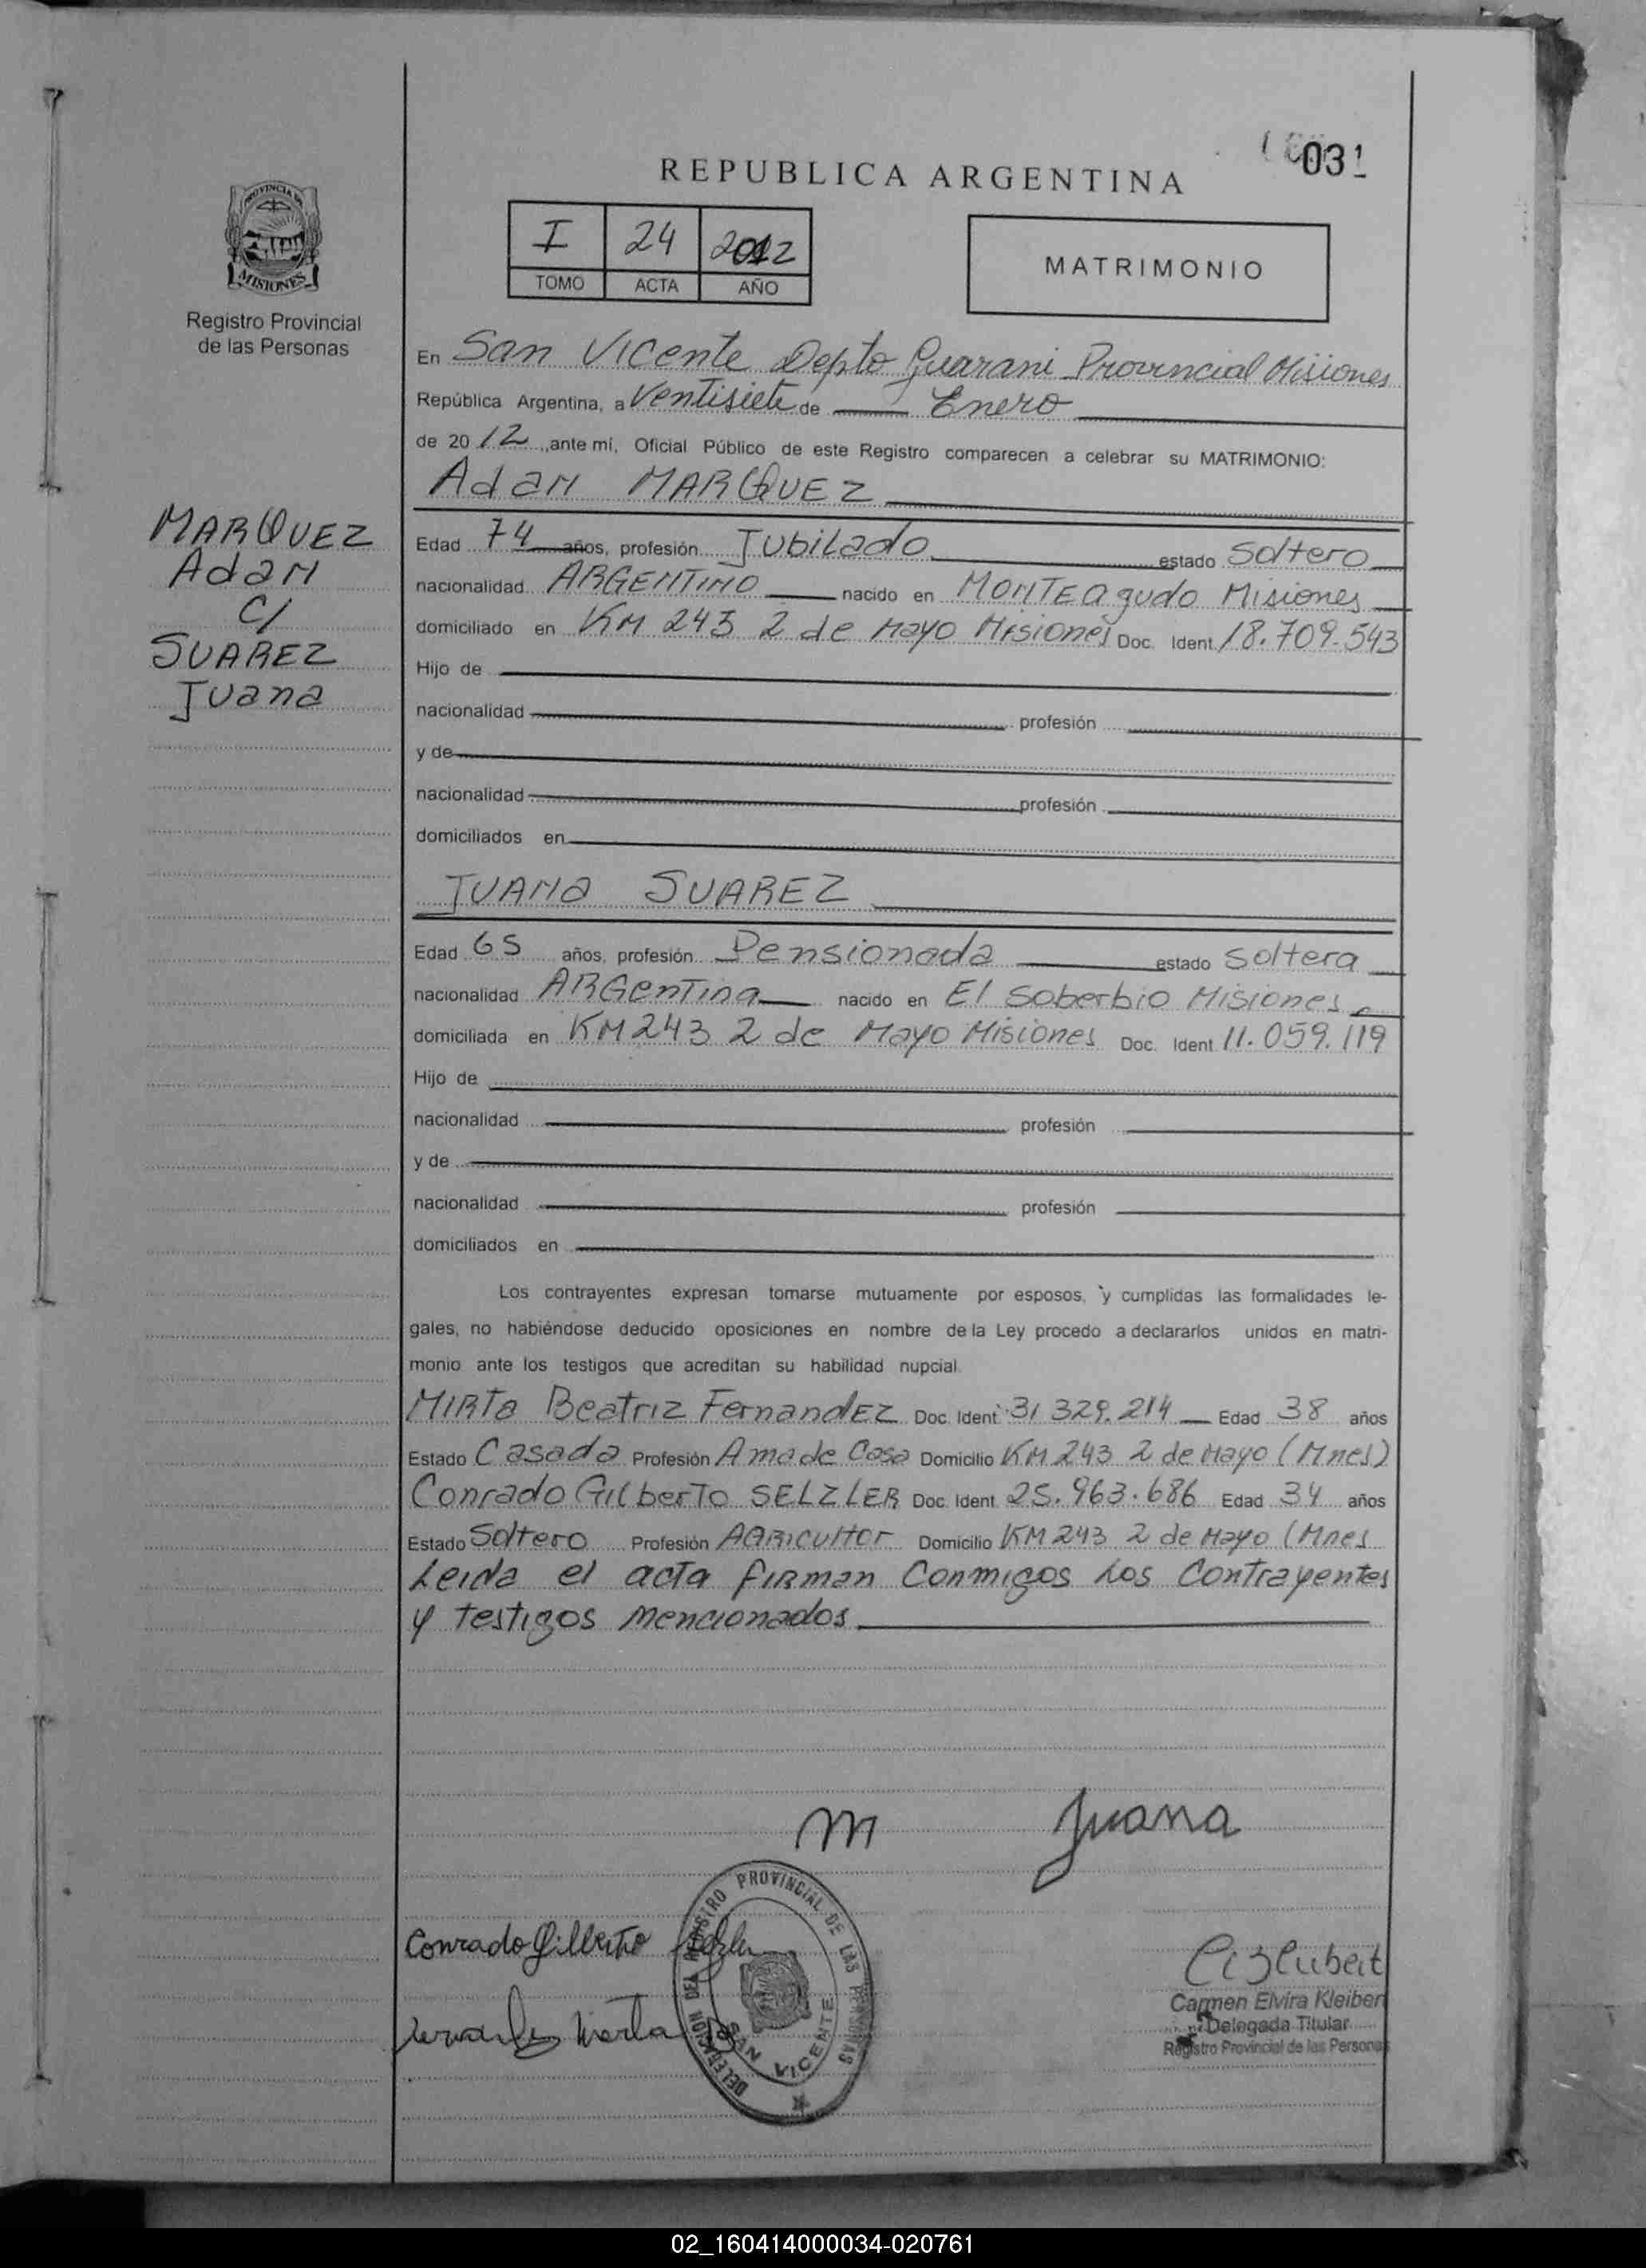 031
REPUBLICA ARGENTINA
I 24 2012
TOMO ACTA AÑO
MATRIMONIO
PROVINCIA DE
MISIONES
Registro Provincial
de las Personas
En San Vicente Depto Guarani Provincial Misiones
República Argentina, a Ventisiete de Enero
de 20 12 , ante mí, Oficial Público de este Registro comparecen a celebrar su MATRIMONIO:
Adan MARQUEZ
MARQUEZ
Adan
C/
SUAREZ
Juana
Edad 74 años, profesión Jubilado estado Soltero
nacionalidad ARGENTINO nacido en MONTEAgudo Misiones
domiciliado en KM 243 2 de Mayo Misiones Doc. Ident. 18.709.543
Hijo de
nacionalidad profesión
y de
nacionalidad profesión
domiciliados en
JUANA SUAREZ
Edad 65 años, profesión Pensionada estado Soltera
nacionalidad ARGentina nacido en El Soberbio Misiones
domiciliada en KM 243 2 de Mayo Misiones Doc. Ident 11.059.119
Hijo de
nacionalidad profesión
y de
nacionalidad profesión
domiciliados en
Los contrayentes expresan tomarse mutuamente por esposos, y cumplidas las formalidades le-
gales, no habiéndose deducido oposiciones en nombre de la Ley procedo a declararlos unidos en matri-
monio ante los testigos que acreditan su habilidad nupcial.
MIRTA Beatriz FernandEZ Doc. Ident 31 329.214 Edad 38 años
Estado Casada Profesión Ama de Casa Domicilio KM 243 2 de Mayo (Mnes)
Conrado GILberTo SELZLER Doc. Ident. 25.963.686 Edad 34 años
Estado Soltero Profesión AGRICultor Domicilio KM 243 2 de Mayo (Mnes
Leida el acta FIRman Conmigos Los Contrayentes
y testigos mencionados
m Juana
Conrado Gilberto
Mirta
DELEGACION DEL REGISTRO PROVINCIAL DE LAS PERSONAS
SAN VICENTE
Carmen Elvira Kleiber
Delegada Titular
Registro Provincial de las Personas
02_160414000034-020761